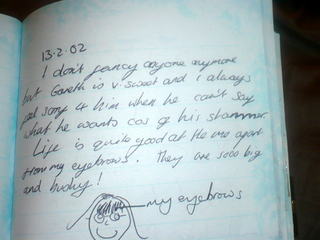 13.2.02
I don't fancy anyone anymore
but Gareth is v. sweet and i always
feel sorry 4 him when he can't say
what he wants cos of his stammer.
Life is quite good at the mo apart
from my eyebrows. They are sooo big
and bushy!
my eyebrows